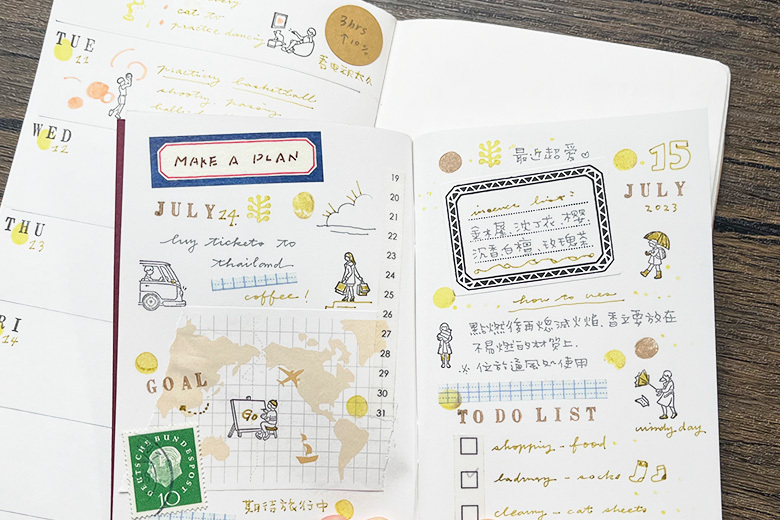 cat to
practice dancing
3hrs
↑10%
TUE
11
practicing basketball
WED
12
THU
13
RI
14
MAKE A PLAN
JULY 24.
buy tickets to
thailand
coffee!
19
20
21
22
23
24
25
26
27
28
29
30
31
GOAL
Go
DEUTSCHE BUNDESPOST
10
期待旅行中
最近超愛
15
JULY
2023
incense list:
金木犀 沈丁花 櫻
沉香 白檀 玫瑰茶
how to use
點燃後再熄滅火焰，香立要放在
不易燃的材質上.
※ 位放通風処使用
windy day
TO DO LIST
shopping - food
laundry - socks
cleaning - cat sheets